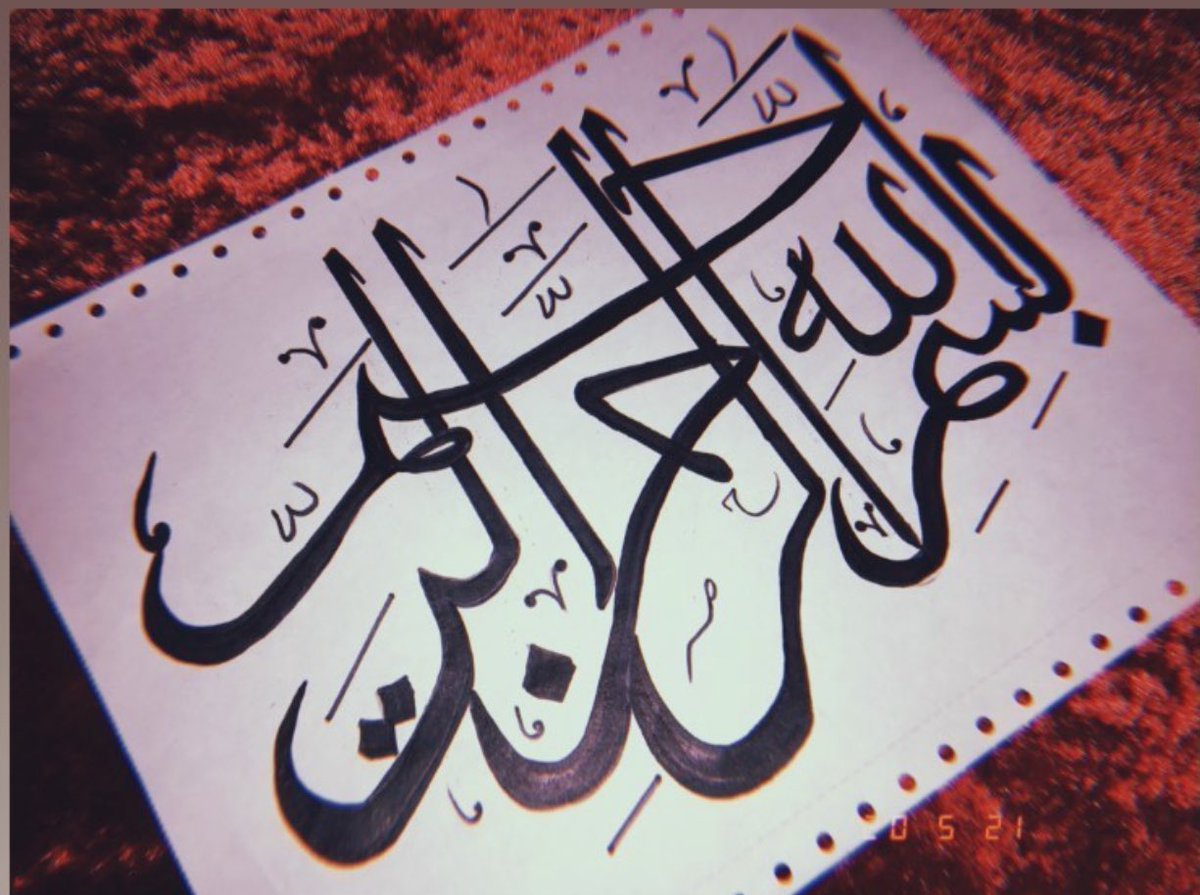 بسم الله الرحمن الرحيم
20 5 21